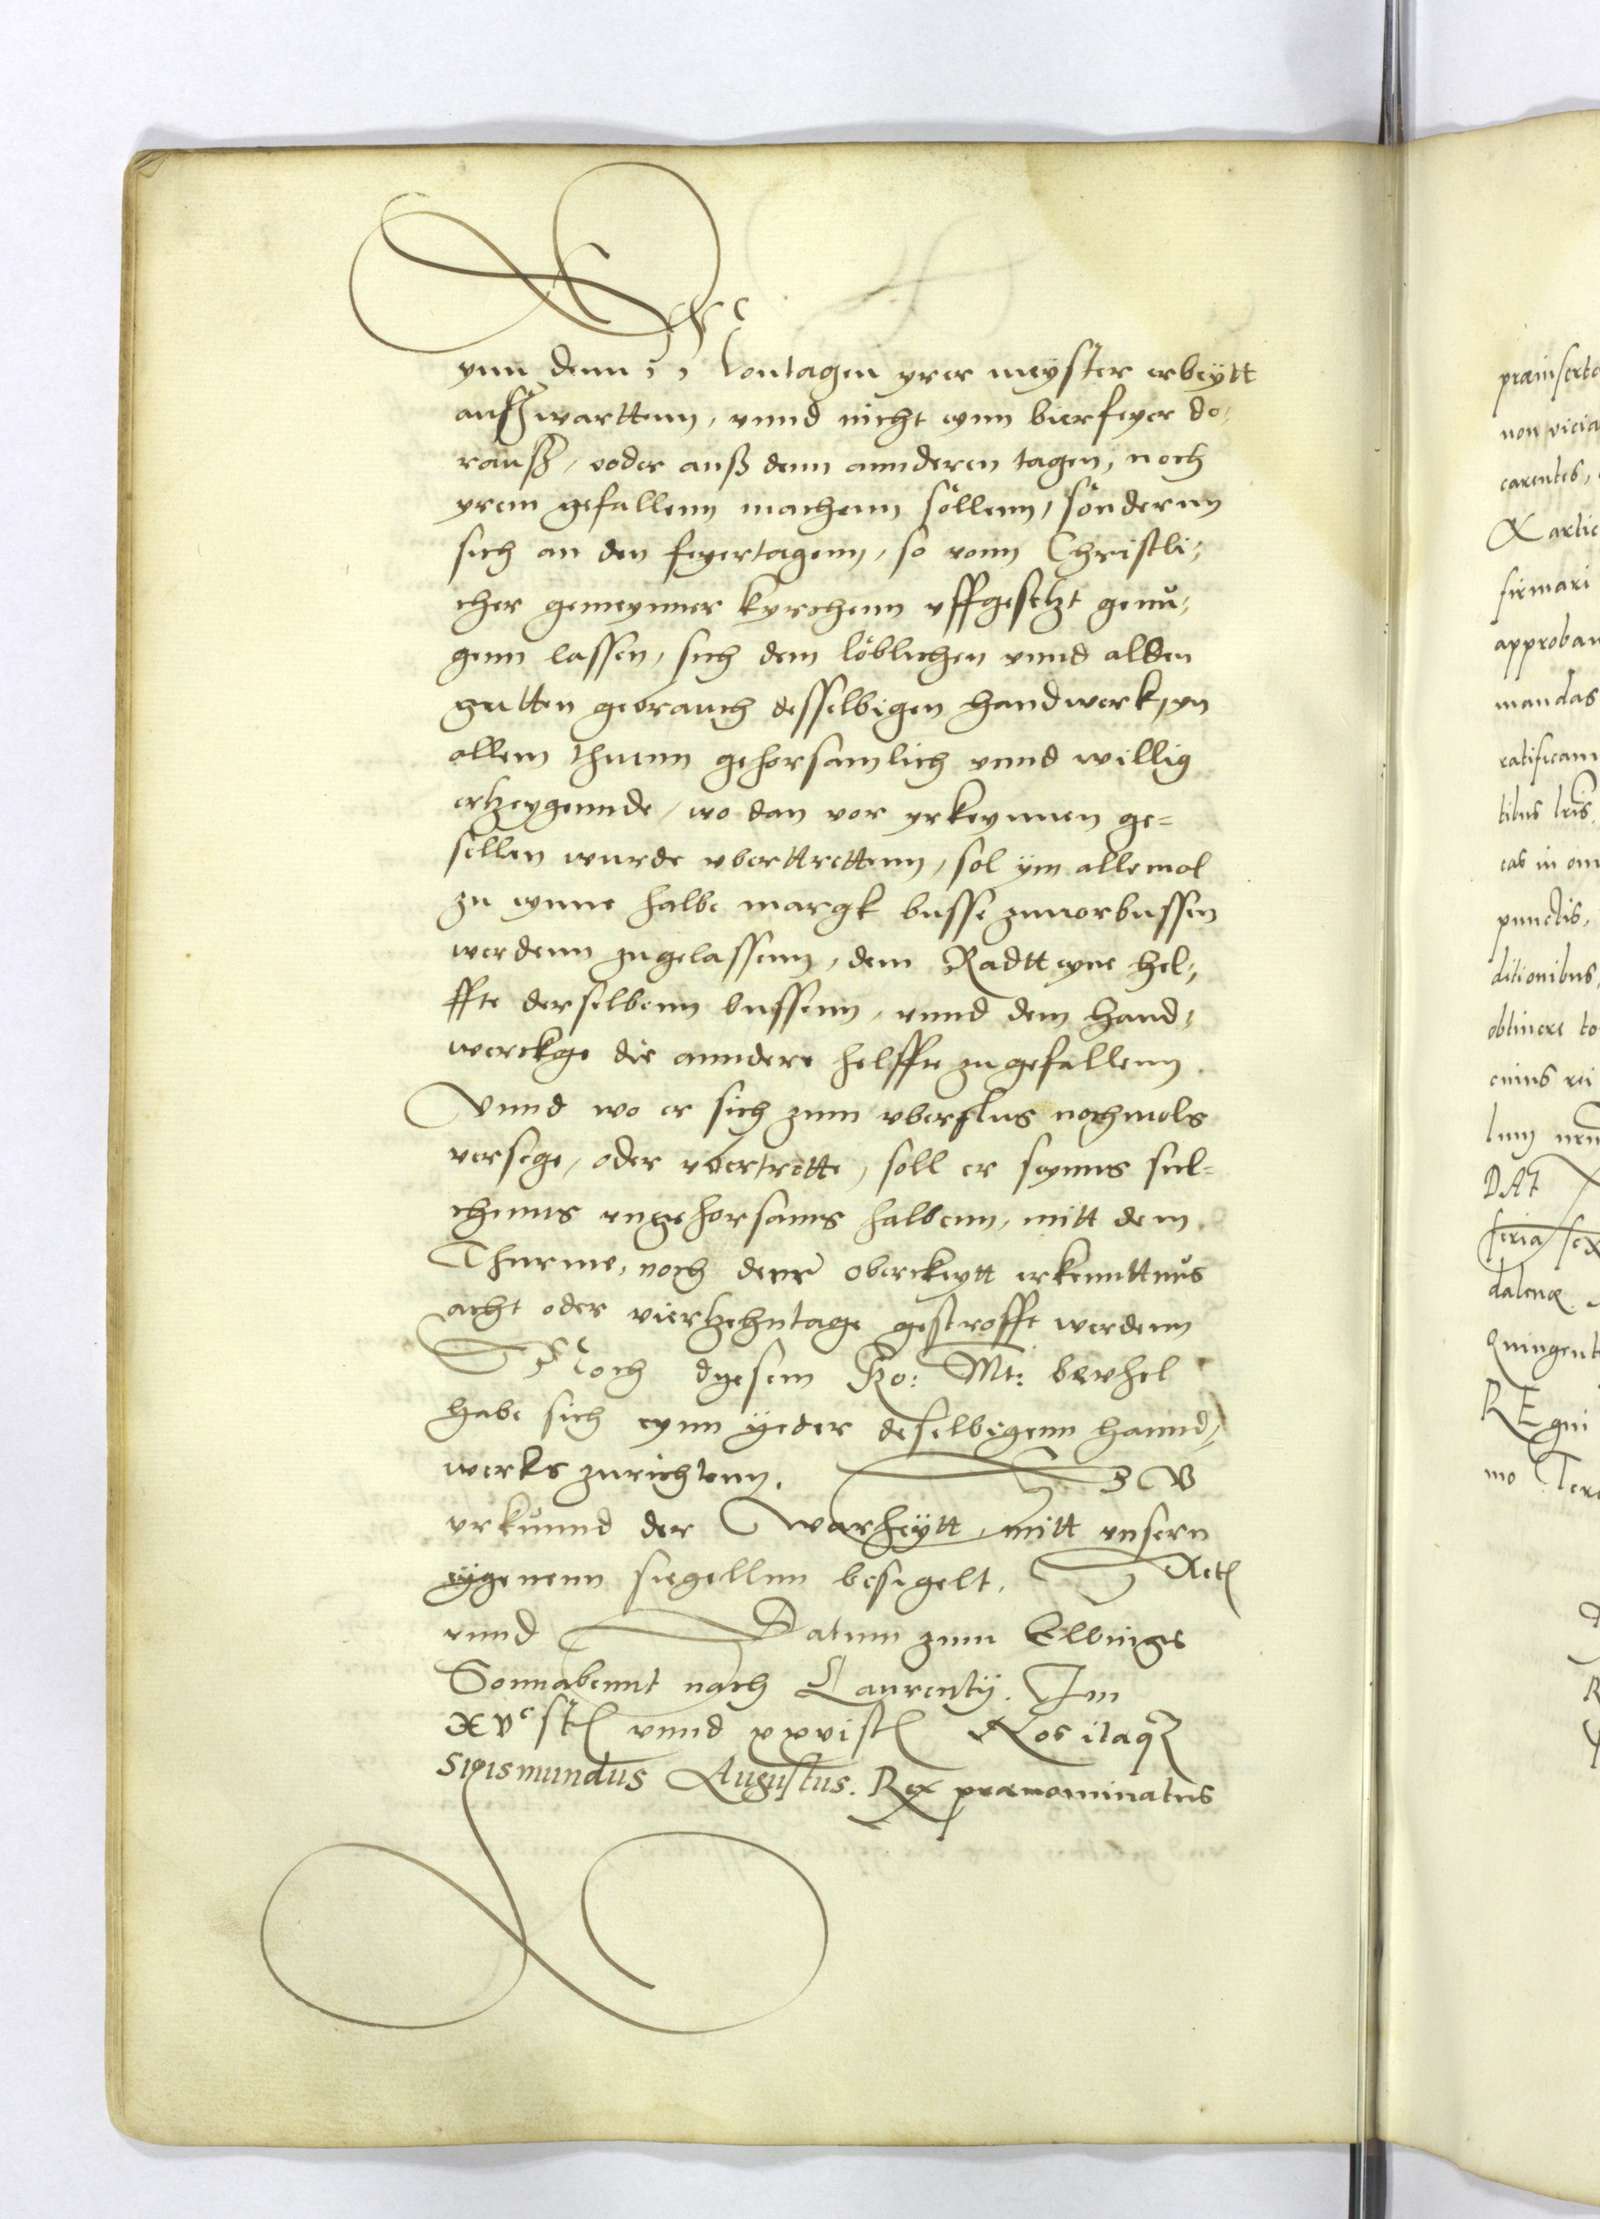 ynn denn Montagen yrer meyster erbeytt
außwarttenn, vnnd nicht eynn bierfeyer do-
rauß, oder auß denn annderen tagen, noch
yrem gefallenn machenn söllenn, sondernn
sich an den feyertagenn, so vonn Christli-
cher gemeynner Kyrchenn vffgesetzt genu-
genn lassen, sich dem löblichen vnnd alden
gutten gebrauch desselbigen handwerk, yn
allem thuenn gehorsamlich vnnd willig
ertzeygennde, wo dan vor yrkeynnen ge=
sellen wurde vberttrettenn, sol ÿm allemol
zu eynne halbe margk busse zuuorbussen
werdenn zugelassenn, dem Radtt eyne hel-
ffte derselbenn bussenn, vnnd dem hand-
werckge die anndere helffte zugefallenn.
Vnnd wo er sich zum vberflus nochmols
versege, oder vbertrette, soll er seynns sul=
chenns vngehorsams halbenn, mitt dem
Thurme, noch derr oberckeytt erkennttnus
acht oder viertzehntage gestrofft werdenn
Noch dyesem Ko: Mt: bevhel
habe sich eynn yeder deselbigenn hannd-
werks zurichtenn. ZV
vrkunnd der Warheÿtt, mitt vnsern
eygenenn siegellnn besigelt. Act
vnnd Datum zum Elbinge
Sonnabennt nach Laurentÿ. Im
XVc st vnnd xxvist Nos itaq
Sigismundus Augustus. Rex prænominatus
præinserta
non vicia
carentes,
artic
firmari
approban
mandas
ratificam
tibus lris
eas in om
punctis,
ditionibus,
obtinere
cuius rei
DAT
feria sex
dalenæ
Quingent
REgni
mo